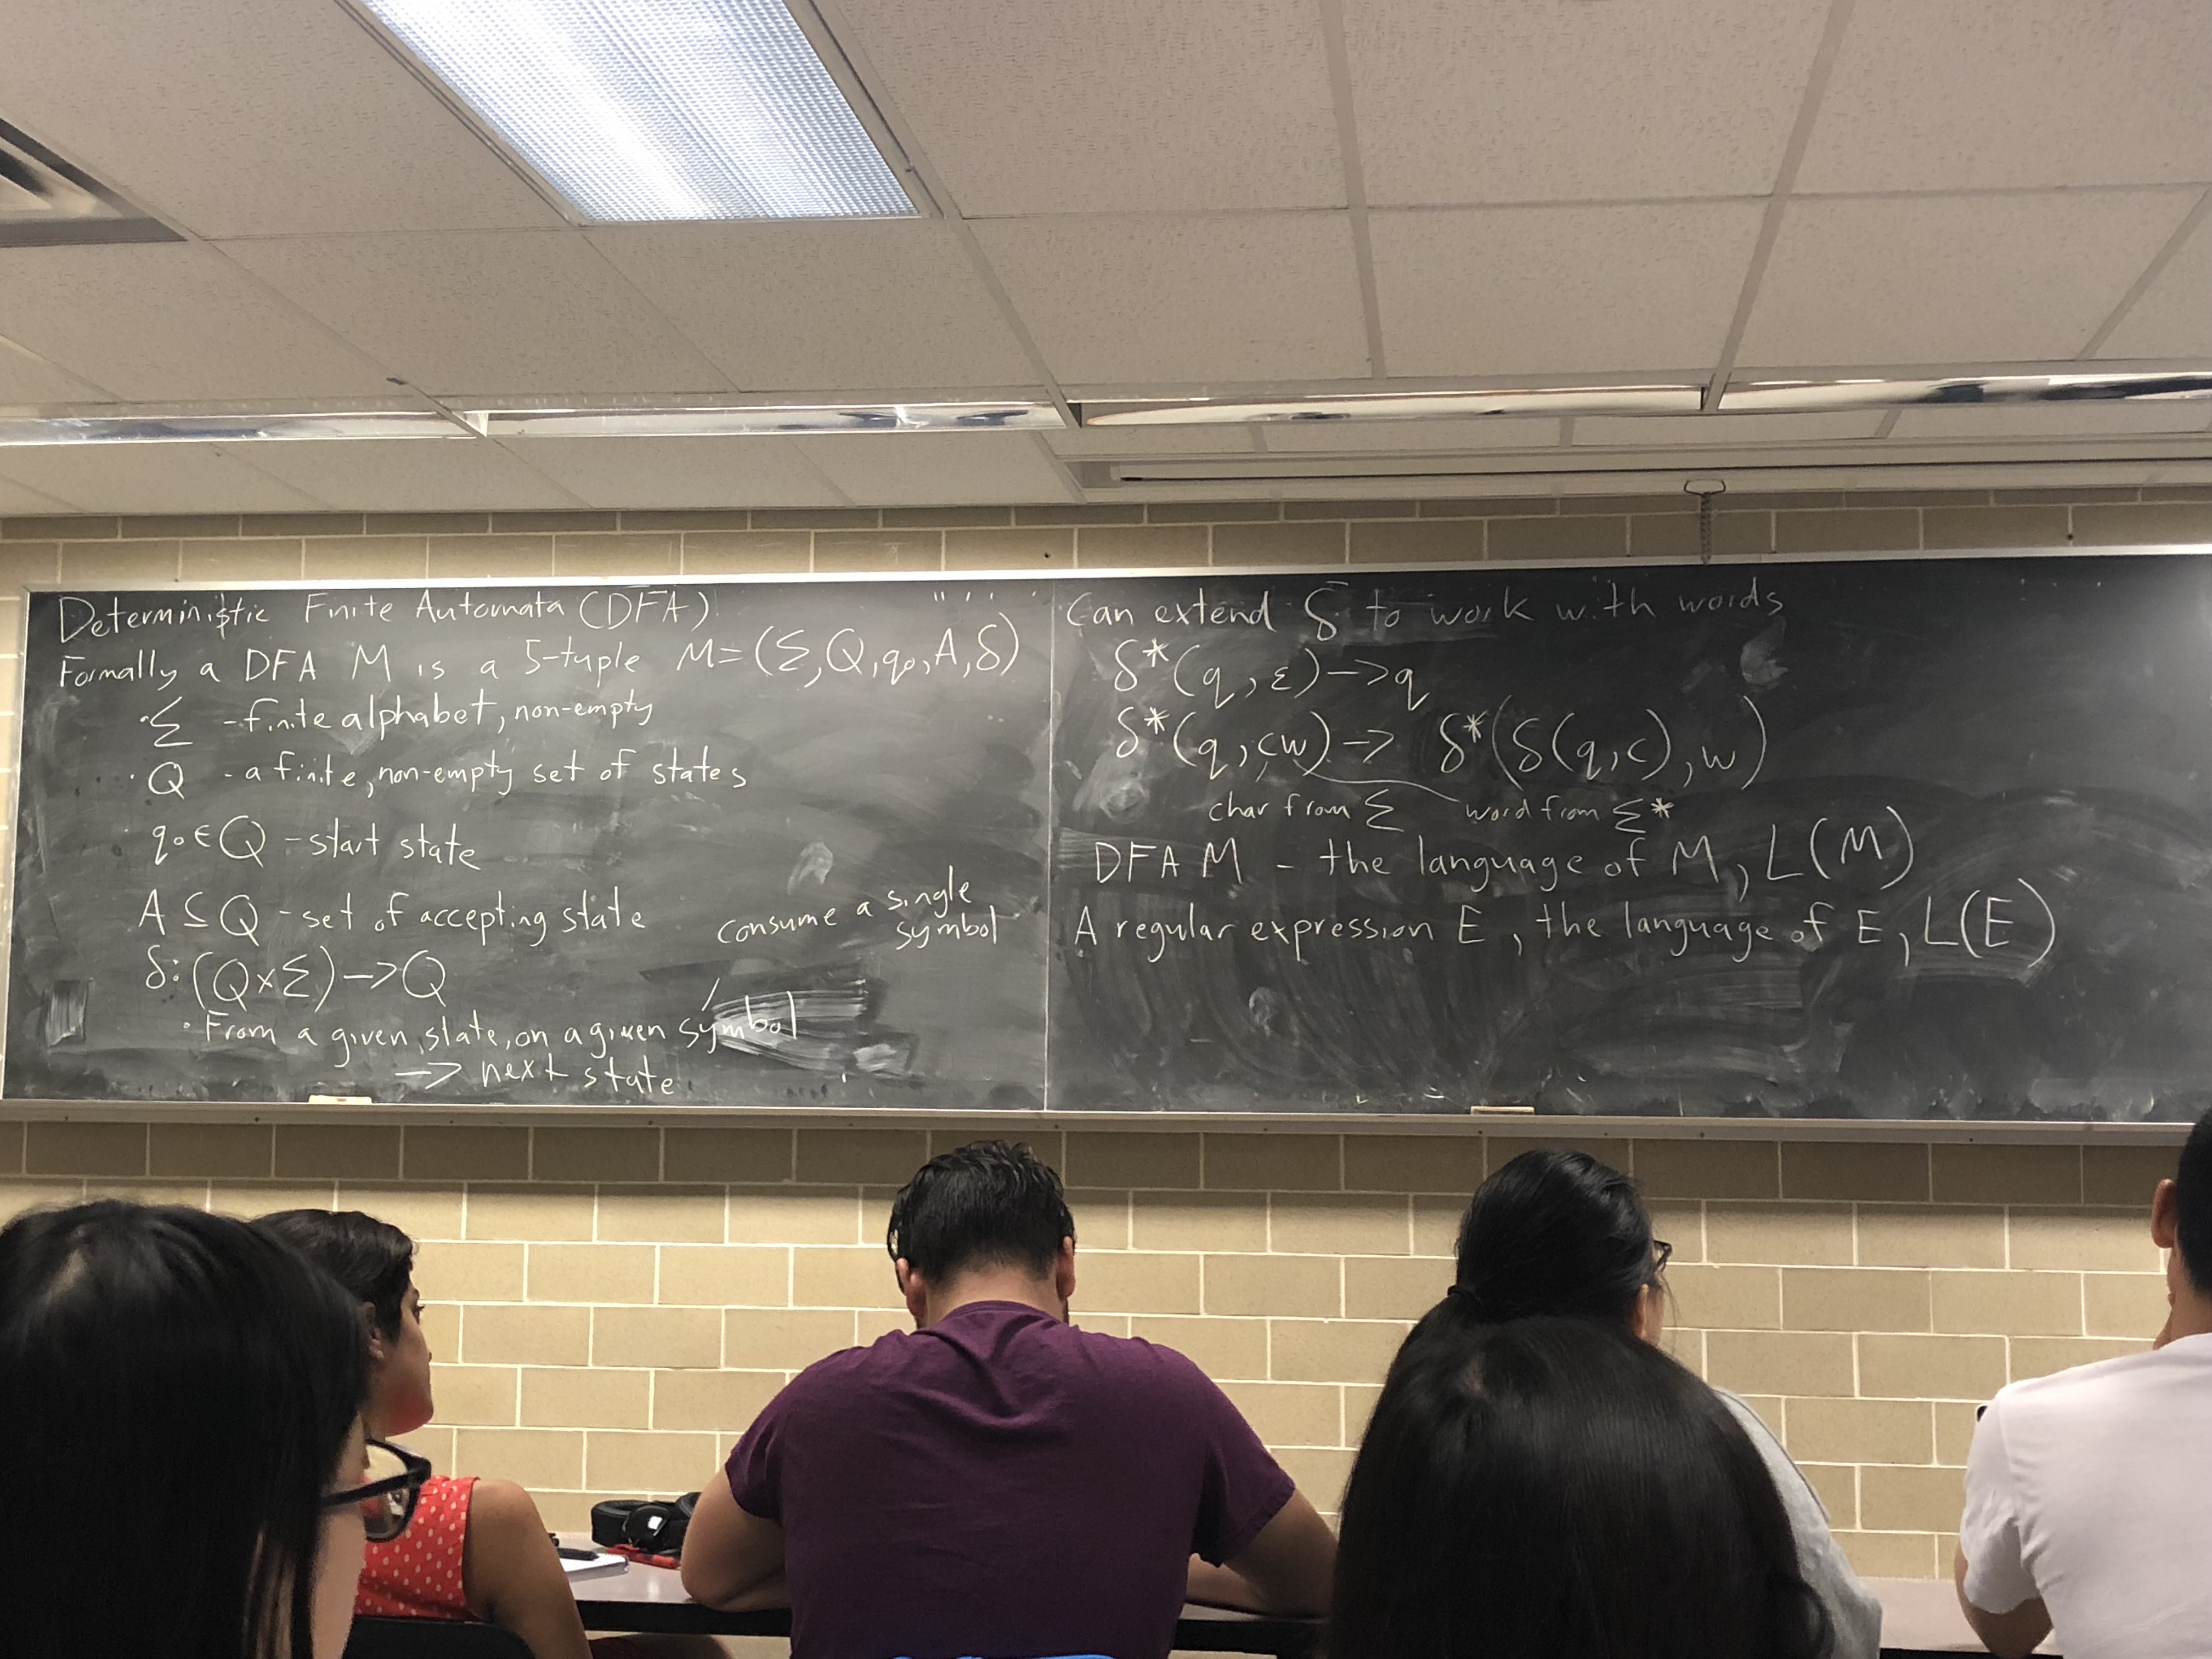 Deterministic Finite Automata (DFA)
Formally a DFA M is a 5-tuple M=(Σ,Q,q₀,A,δ)
·Σ -finite alphabet, non-empty
·Q -a finite, non-empty set of states
q₀∈Q -start state
A⊆Q -set of accepting state
δ:(Q×Σ)->Q
consume a single
symbol
·From a given state, on a given symbol
-> next state
Can extend δ to work with words
δ*(q,ε)->q
δ*(q,cw)-> δ*(δ(q,c),w)
char from Σ word from Σ*
DFA M - the language of M, L(M)
A regular expression E, the language of E, L(E)